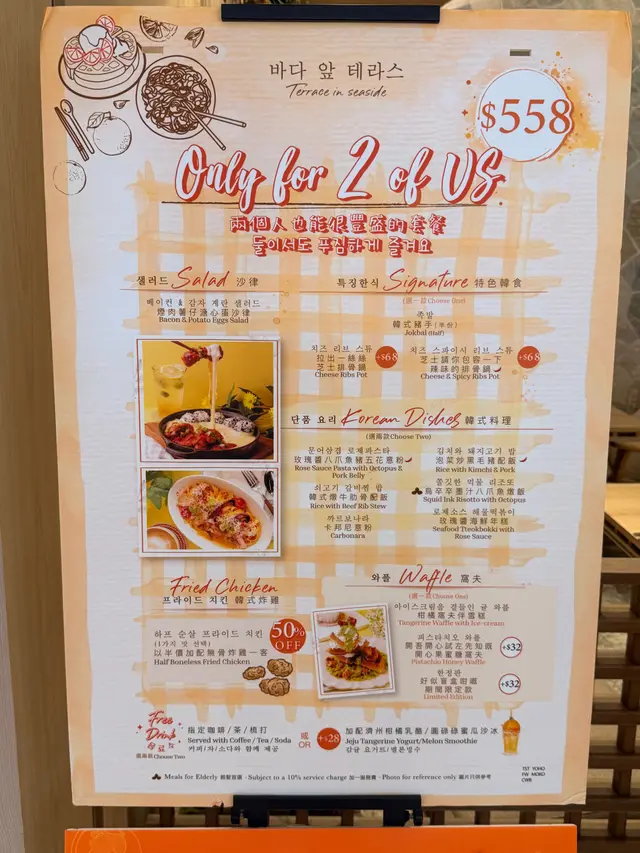 바다 앞 테라스
Terrace in seaside
$558
Only for 2 of US
兩個人也能很豐盛的套餐
둘이서도 푸짐하게 즐겨요
샐러드 Salad 沙律
베이컨 & 감자 계란 샐러드
煙肉薯仔溏心蛋沙律
Bacon & Potato Eggs Salad
특징한식 Signature 特色韓食
(選一款Choose One)
족발
韓式豬手(半份)
Jokbal (Half)
치즈 리브 스튜
拉出一絲絲
芝士排骨鍋
Cheese Ribs Pot
+$68
치즈 스파이시 리브 스튜
芝士請你包容一下
辣味的排骨鍋
Cheese & Spicy Ribs Pot
+$68
단품 요리 Korean Dishes 韓式料理
(選兩款Choose Two)
문어삼겹 로제파스타
玫瑰醬八爪魚豬五花意粉
Rose Sauce Pasta with Octopus &
Pork Belly
쇠고기 갈비찜 밥
韓式燉牛肋骨配飯
Rice with Beef Rib Stew
까르보나라
卡邦尼意粉
Carbonara
김치와 돼지고기 밥
泡菜炒黑毛豬配飯
Rice with Kimchi & Pork
쫄깃한 먹물 리조또
烏卒卒墨汁八爪魚燉飯
Squid Ink Risotto with Octopus
로제소스 해물떡볶이
玫瑰醬海鮮年糕
Seafood Tteokbokki with
Rose Sauce
Fried Chicken
프라이드 치킨 韓式炸雞
하프 순살 프라이드 치킨
(1가지 맛 선택)
以半價加配無骨炸雞一客
Half Boneless Fried Chicken
50%
OFF
와플 Waffle 窩夫
(選一款Choose One)
아이스크림을 곁들인 귤 와플
柑橘窩夫伴雪糕
Tangerine Waffle with Ice-cream
피스타치오 와플
開吾開心試左先知嘅
開心果蜜糖窩夫
Pistachio Honey Waffle
+$32
한정판
好似盲盒咁嘅
期間限定款
Limited Edition
+$32
Free
Drink
음료
選兩款Choose Two
指定咖啡/茶/梳打
Served with Coffee / Tea / Soda
커피/차/소다와 함께 제공
或
OR
+$28
加配濟州柑橘乳酪/圓碌碌蜜瓜沙冰
Jeju Tangerine Yogurt/Melon Smoothie
감귤 요거트/멜론빙수
Meals for Elderly 輕鬆首選 · Subject to a 10% service charge 加一服務費 · Photo for reference only 圖片只供參考
TST YOHO
PW MOKO
CWB